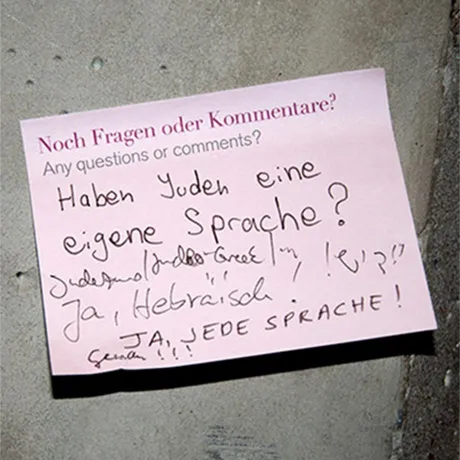 Noch Fragen oder Kommentare?
Any questions or comments?
Haben Juden eine
eigene Sprache?
Ja, Hebräisch.
JA, JEDE SPRACHE!
genau!!!